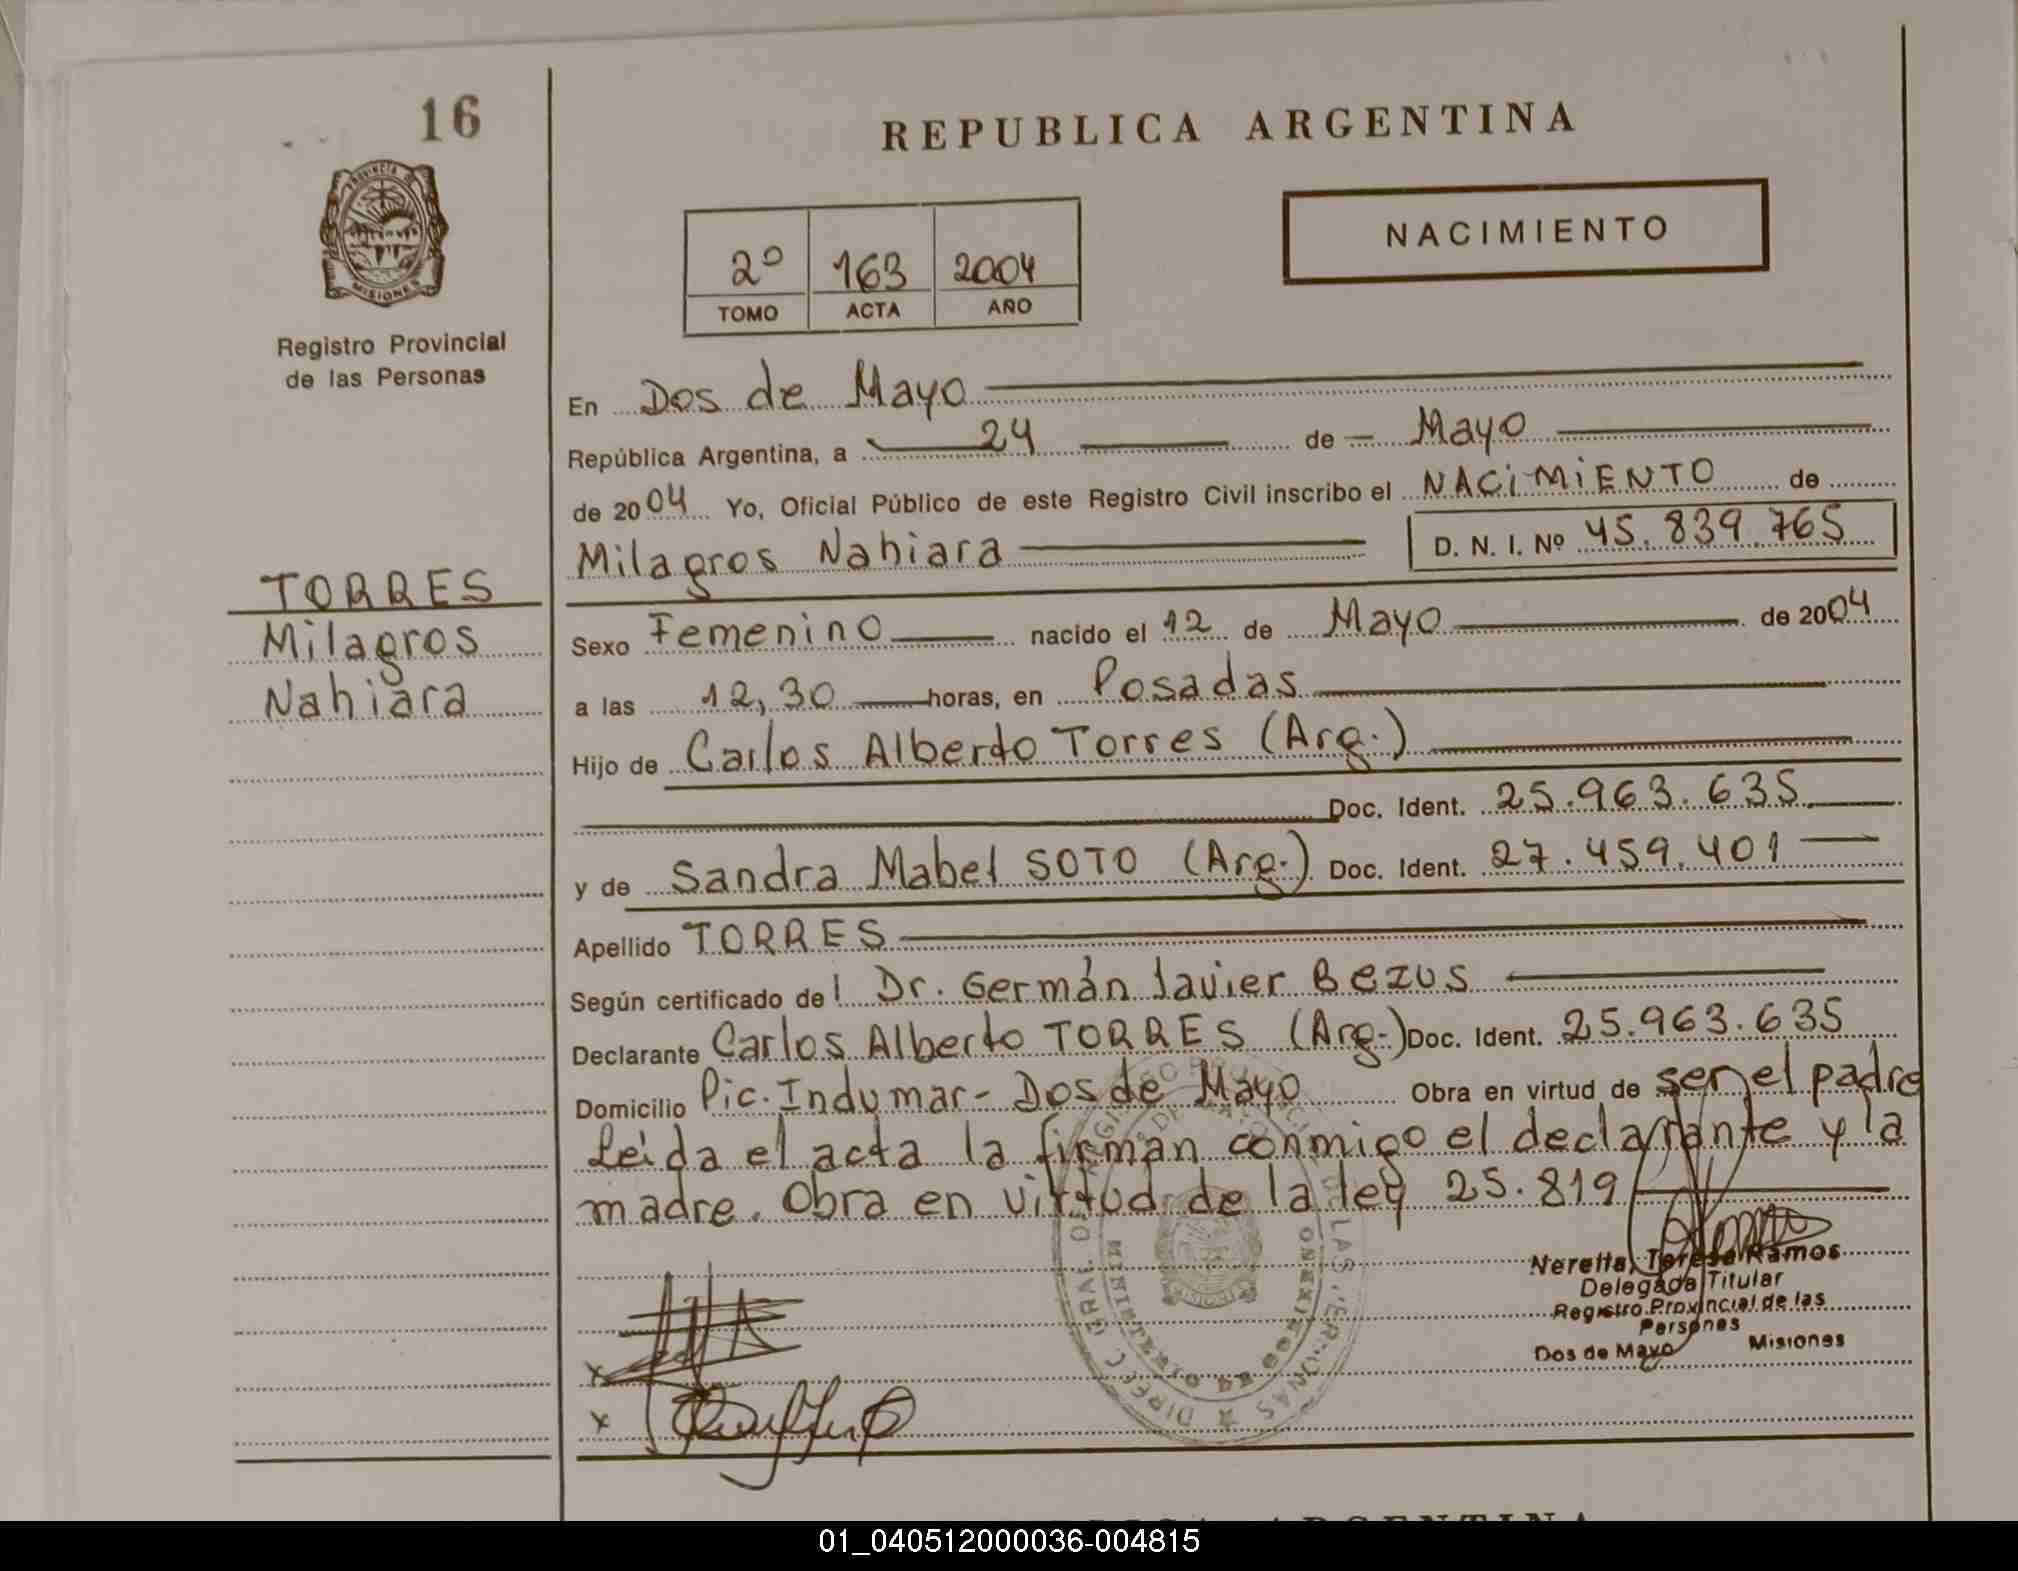 16
REPUBLICA ARGENTINA
NACIMIENTO
2º 163 2004
TOMO ACTA AÑO
PROVINCIA DE
MISIONES
Registro Provincial
de las Personas
En Dos de Mayo
República Argentina, a 24 de Mayo
de 2004 Yo, Oficial Público de este Registro Civil inscribo el NACiMiENTO de
Milagros Nahiara D. N. I. Nº 45.839.765
TORRES
Milagros
Nahiara
Sexo Femenino nacido el 12 de Mayo de 2004
a las 12,30 horas, en Posadas
Hijo de Carlos Alberto Torres (Arg.)
Doc. Ident. 25.963.635
y de Sandra Mabel SOTO (Arg.) Doc. Ident. 27.459.401
Apellido TORRES
Según certificado del Dr. Germán Javier Bezus
Declarante Carlos Alberto TORRES (Arg.) Doc. Ident. 25.963.635
Domicilio Pic. Indumar - Dos de Mayo Obra en virtud de ser el padre
Leída el acta la firman conmigo el declarante y la
madre. Obra en virtud de la ley 25.819
Neretta, Teresa Ramos
Delegada Titular
Registro Provincial de las
Persones
Dos de Mayo Misiones
01_040512000036-004815